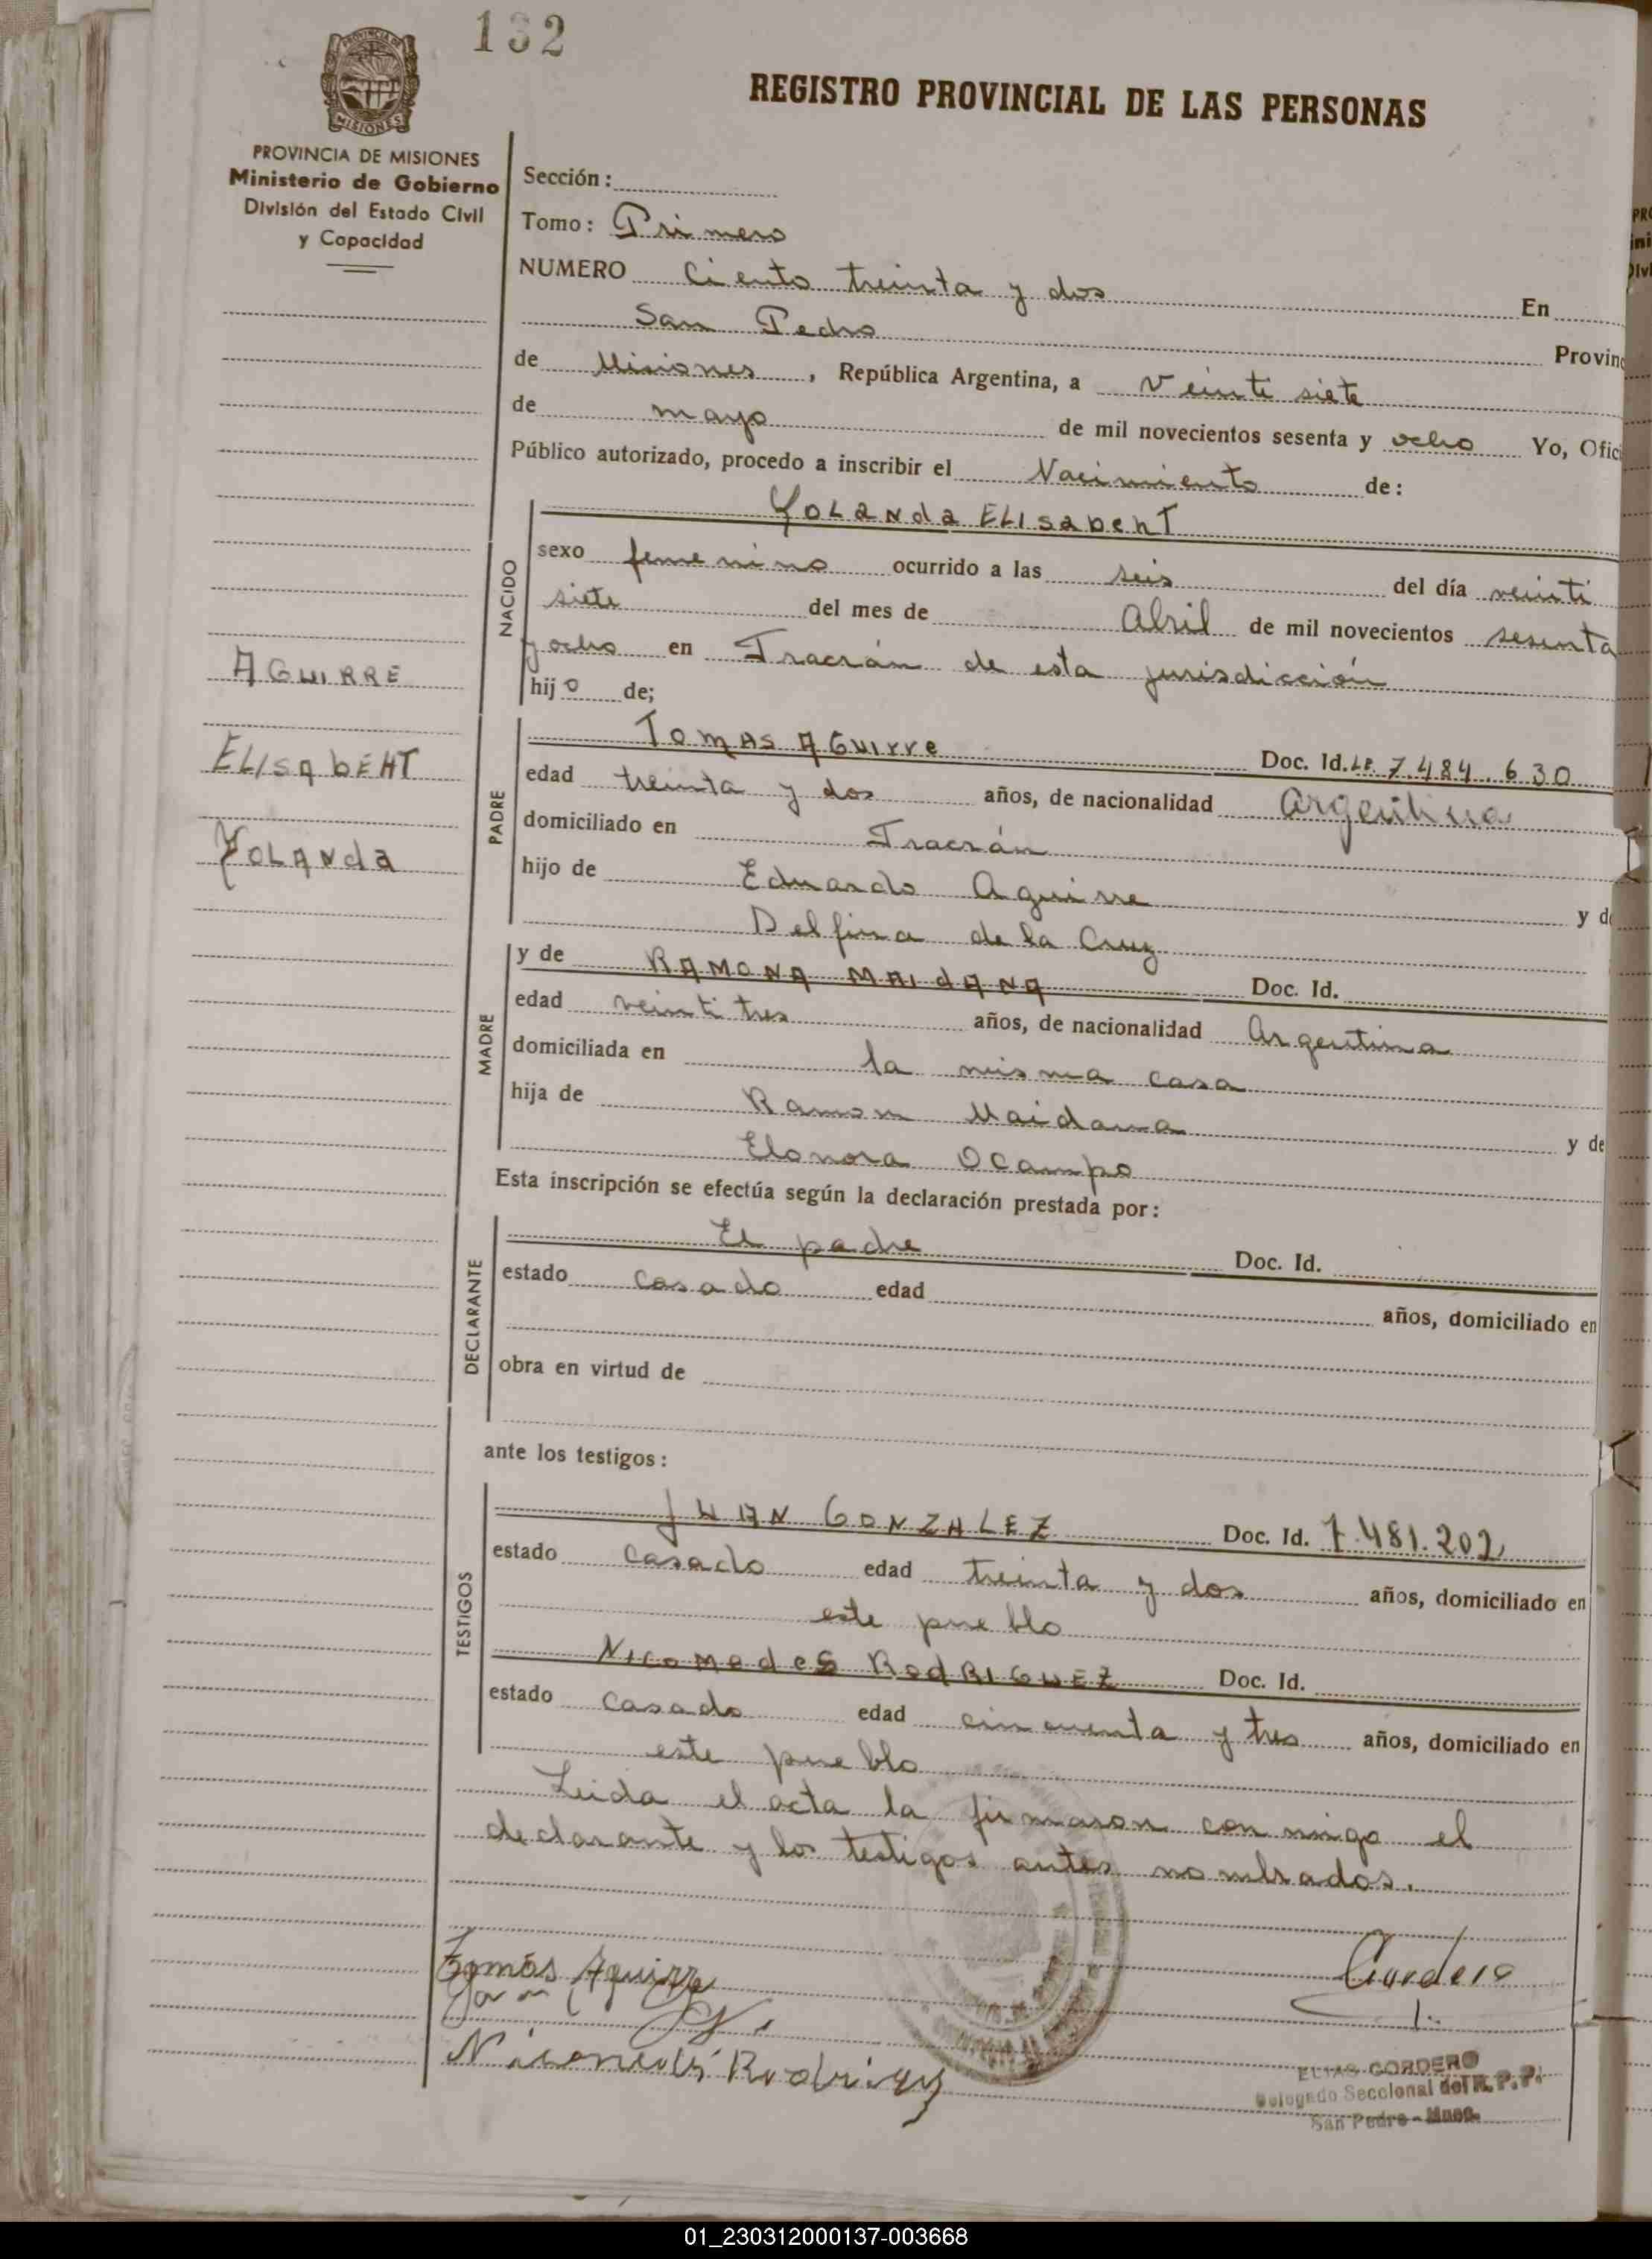 132
REGISTRO PROVINCIAL DE LAS PERSONAS
PROVINCIA DE MISIONES
MISIONES
PROVINCIA DE MISIONES
Ministerio de Gobierno
División del Estado Civil
y Capacidad
Sección:
Tomo: Primero
NUMERO Ciento treinta y dos En
San Pedro Provinc
de Misiones, República Argentina, a veinti siete
de mayo de mil novecientos sesenta y ocho Yo, Ofici
Público autorizado, procedo a inscribir el Nacimiento de:
NACIDO
YOLANda ELISabehT
sexo femenino ocurrido a las seis del día veinti
siete del mes de Abril de mil novecientos sesenta
y ocho en Tracrán de esta jurisdicción
hijo de;
AGUIRRE
ELISAbEHT
YOLANda
PADRE
TOMAS AGUIrre Doc. Id. LE 7.484.630
edad treinta y dos años, de nacionalidad Argentina
domiciliado en Tracrán
hijo de Eduardo Aguirre y de
Delfina de la Cruz
MADRE
y de RAMONA MAIdANA Doc. Id.
edad veinti tres años, de nacionalidad Argentina
domiciliada en la misma casa
hija de Ramon Maidana y de
Elonora Ocampo
Esta inscripción se efectúa según la declaración prestada por:
DECLARANTE
El padre Doc. Id.
estado casado edad años, domiciliado en
obra en virtud de
ante los testigos:
TESTIGOS
JUAN GONZALEZ Doc. Id. 7.481.202
estado casado edad treinta y dos años, domiciliado en
este pueblo
NICOMedeS RodRIGUEZ Doc. Id.
estado casado edad cincuenta y tres años, domiciliado en
este pueblo
Leida el acta la firmaron conmigo el
declarante y los testigos antes nombrados.
Tomás Aguirre
Cordero
ELIAS CORDERO
Delegado Seccional del R. P. P.
San Pedro - Mnes.
01_230312000137-003668